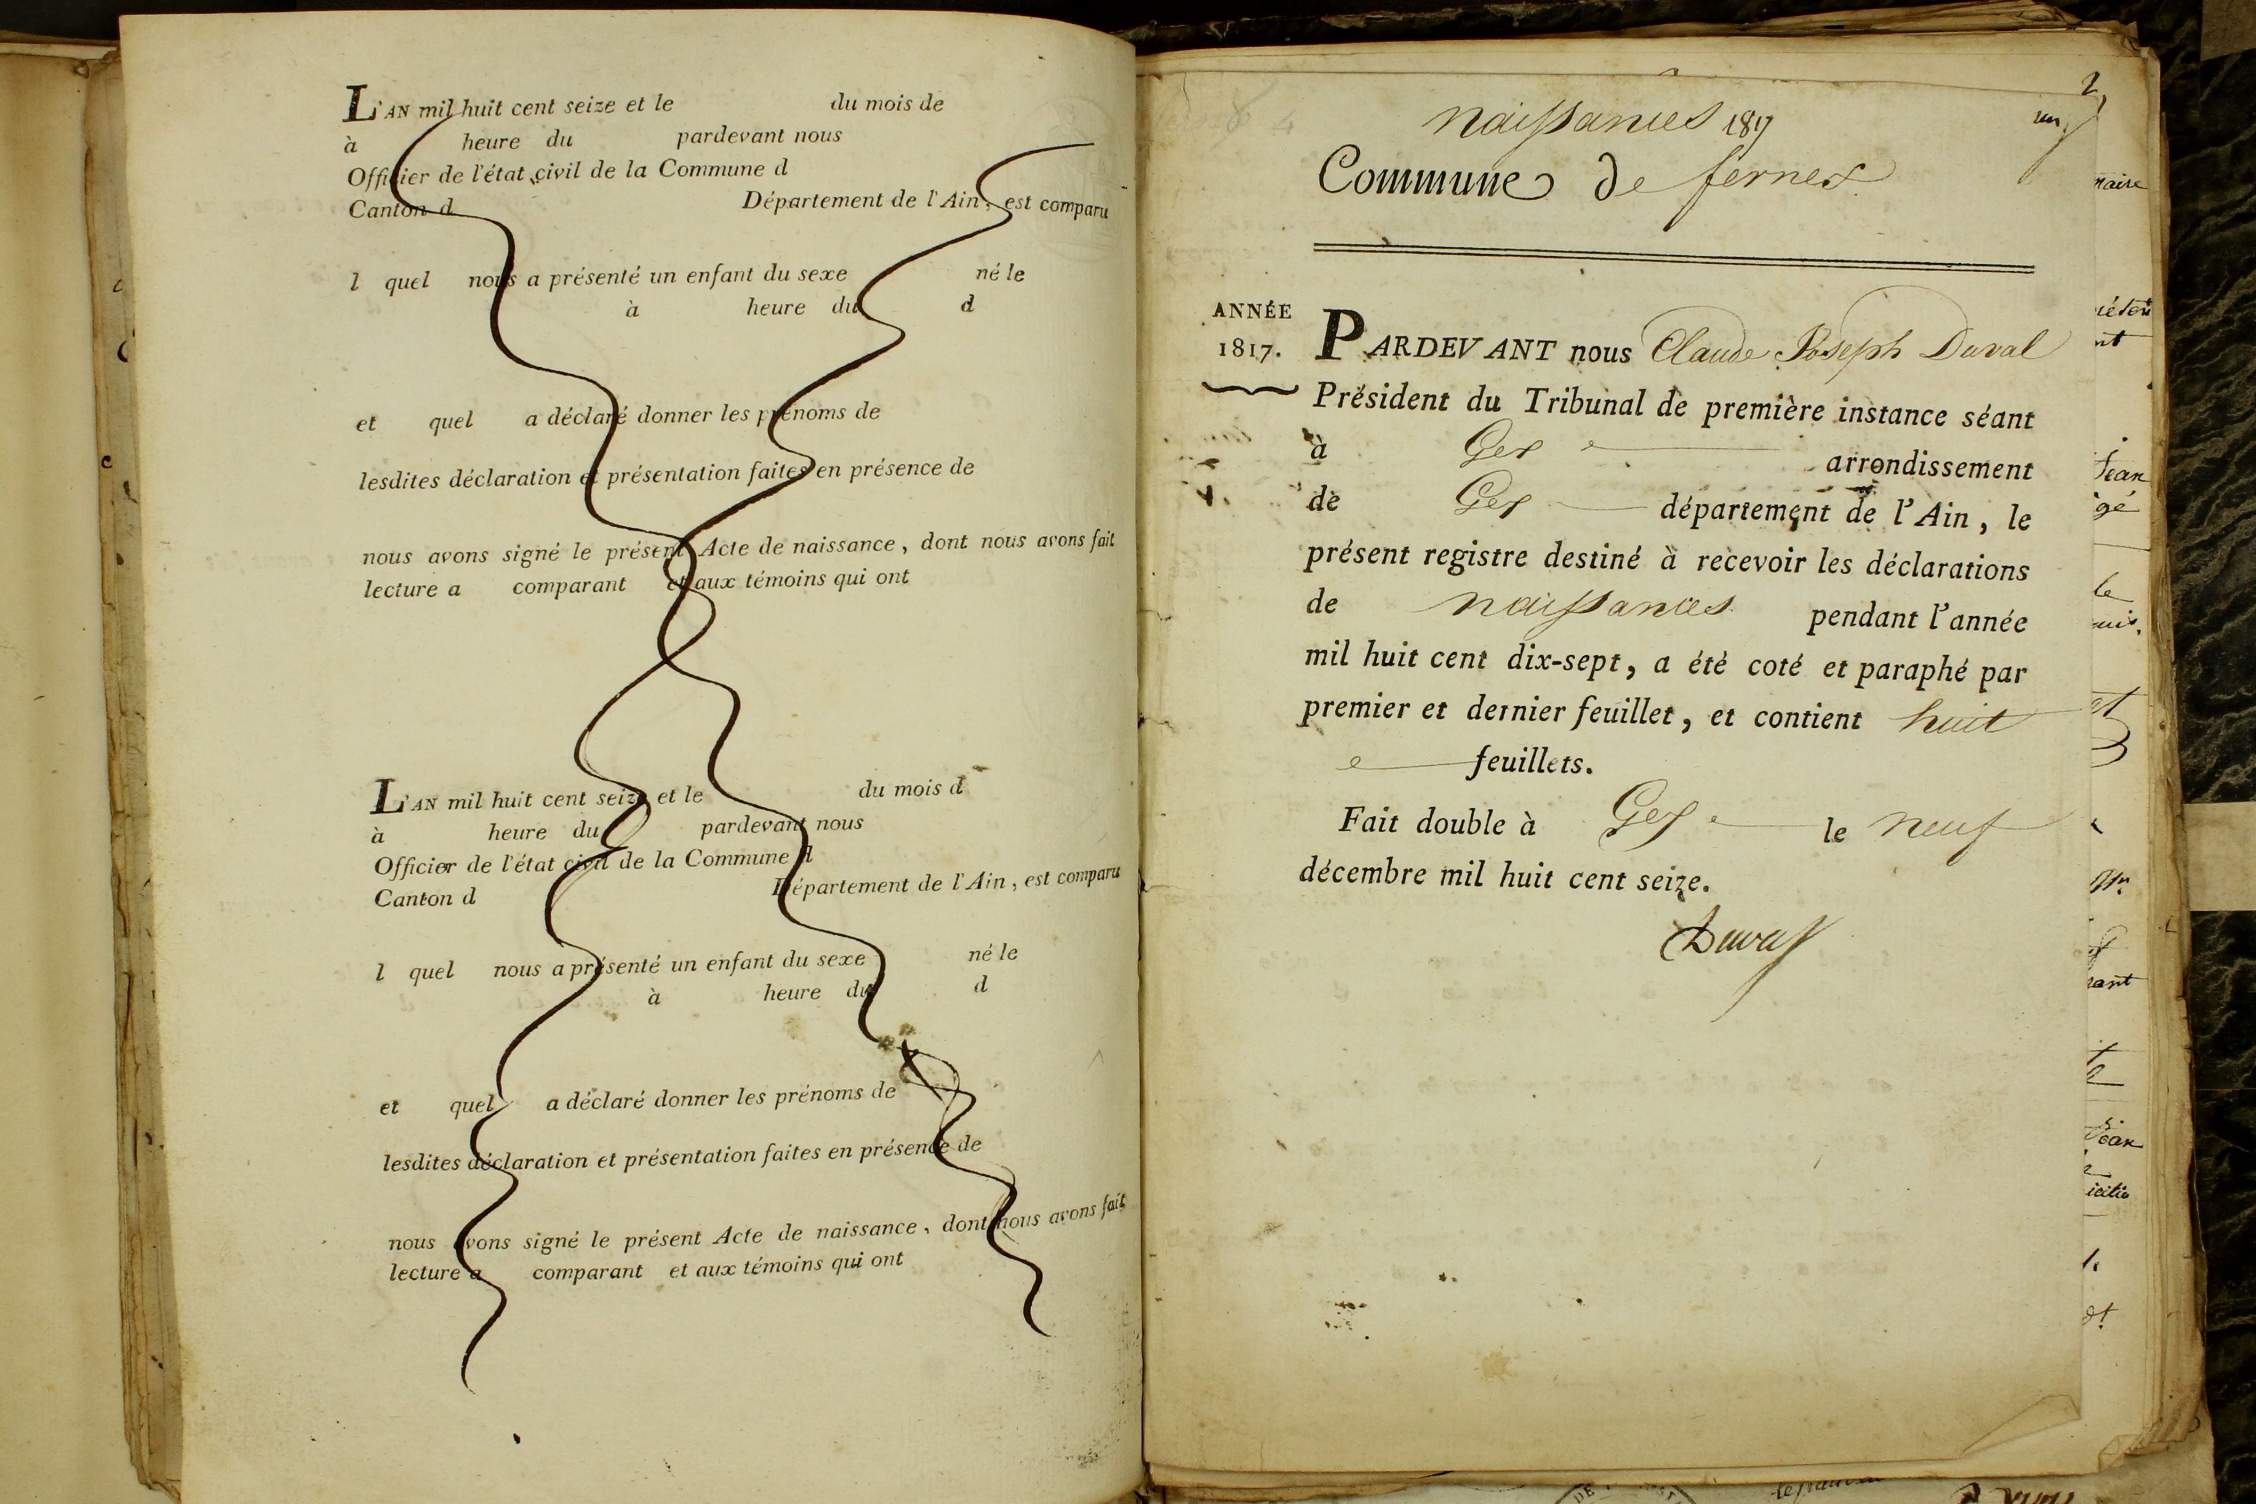 L'AN mil huit cent seize et le du mois de
à heure du pardevant nous
Officier de l'état civil de la Commune d
Canton d Département de l'Ain, est comparu
l quel nous a présenté un enfant du sexe né le
à heure du d
et quel a déclaré donner les prénoms de
lesdites déclaration et présentation faites en présence de
nous avons signé le présent Acte de naissance, dont nous avons fait
lecture a comparant et aux témoins qui ont
L'AN mil huit cent seize et le du mois d
à heure du pardevant nous
Officier de l'état civil de la Commune d
Canton d Département de l'Ain, est comparu
l quel nous a présenté un enfant du sexe né le
à heure du d
et quel a déclaré donner les prénoms de
lesdites déclaration et présentation faites en présence de
nous avons signé le présent Acte de naissance, dont nous avons fait
lecture a comparant et aux témoins qui ont
2
un
naissances 1817
Commune de fernex
ANNÉE
1817.
PARDEVANT nous Claude Joseph Duval
Président du Tribunal de première instance séant
à Gex arrondissement
de Gex département de l'Ain, le
présent registre destiné à recevoir les déclarations
de naissances pendant l'année
mil huit cent dix-sept, a été coté et paraphé par
premier et dernier feuillet, et contient huit
feuillets.
Fait double à Gex le neuf
décembre mil huit cent seize.
Duval